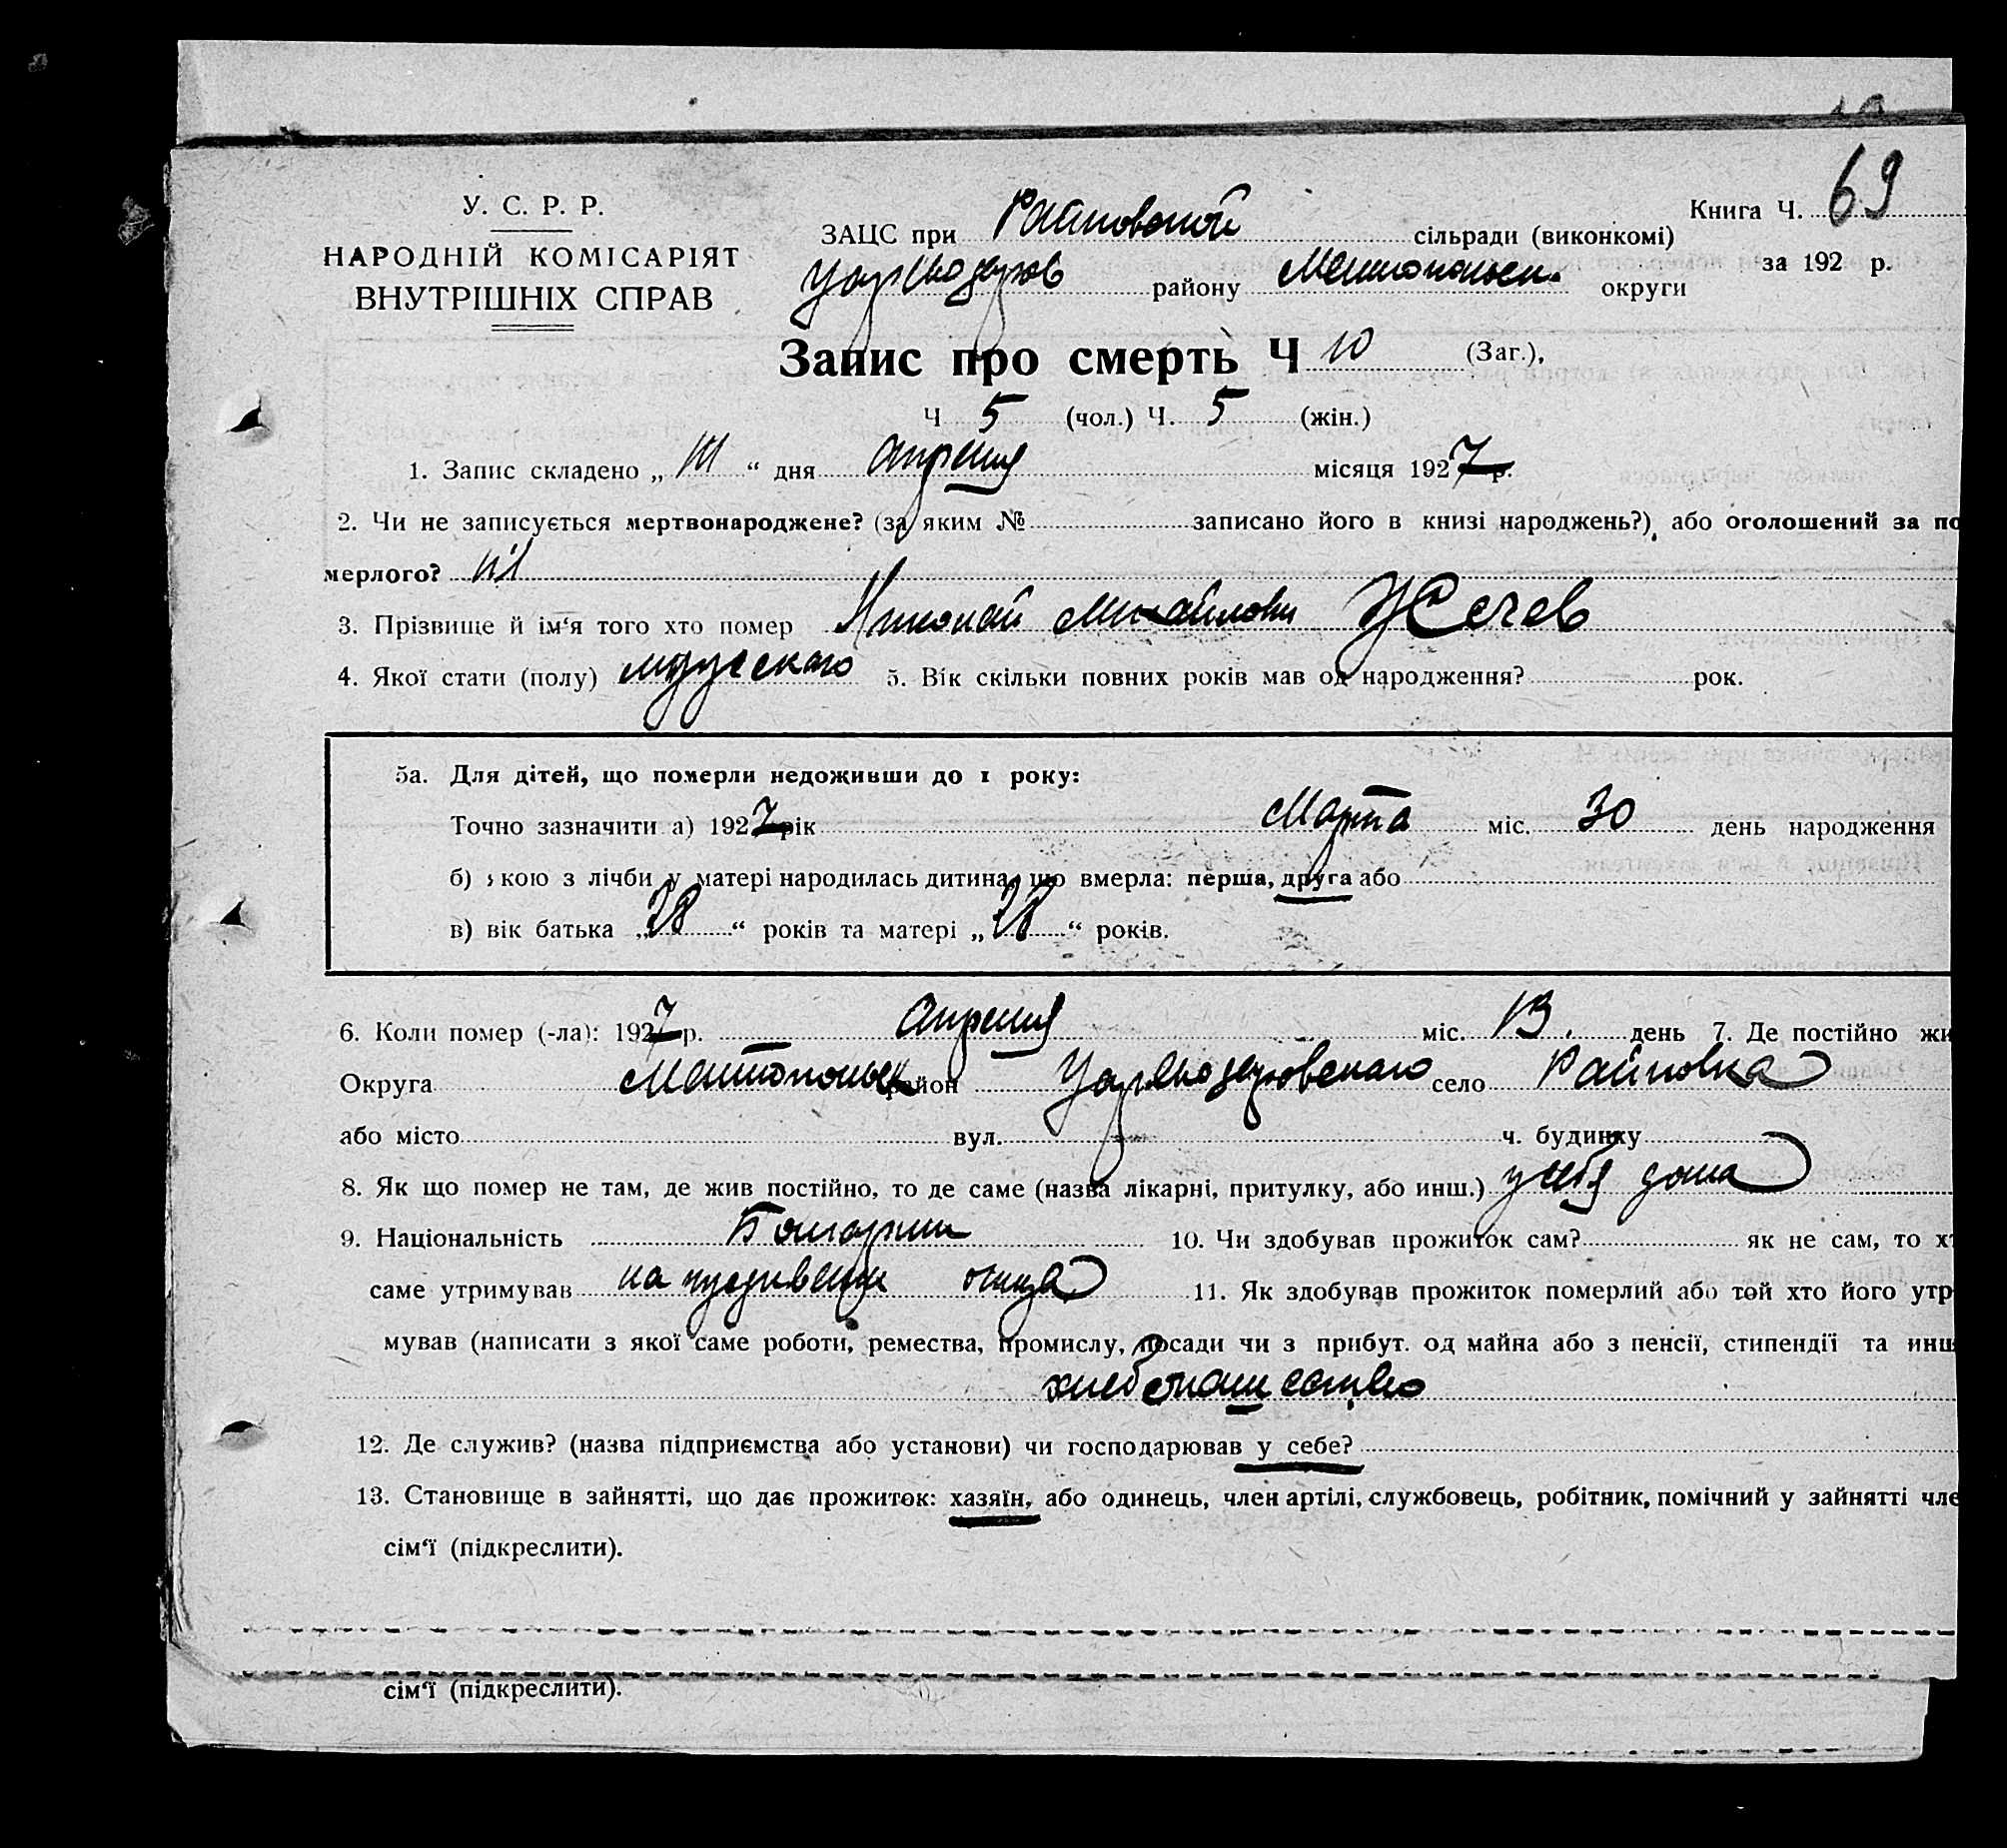 У. С. Р. Р.
НАРОДНІЙ КОМІСАРІЯТ
ВНУТРІШНІХ СПРАВ
Книга Ч. 69
за 192 р.
ЗАЦС при Райновской сільради (виконкомі)
району Мелитопольск. округи
Запис про смерть Ч 10 (Заг.),
Ч 5 (чол.) Ч. 5 (жін.)
1. Запис складено „ “ дня апреля місяця 1927 р.
2. Чи не записується мертвонароджене? (за яким № записано його в книзі народжень?), або оголошений за по
мерлого? ні
3. Прізвище й ім‘я того хто помер Николай Михайлови Жечев
4. Якої стати (полу) мужскаго 5. Вік скільки повних років мав од народження? рок.
5а. Для дітей, що померли недоживши до 1 року:
Точно зазначити а) 1927 рік Марта міс. 30 день народження
б) кою з лічби у матері народилась дитина, що вмерла: перша, друга або
в) вік батька „28“ років та матері „28“ років.
6. Коли помер (-ла): 1927 р. апреля міс. 13. день 7. Де постійно жи
Округа Мелитопольск район село Райновка
або місто вул. ч. будинку
8. Як що помер не там, де жив постійно, то де саме (назва лікарні, притулку, або инш.) у себя дома
9. Національність Болгарин 10. Чи здобував прожиток сам? як не сам, то х
саме утримував на отца 11. Як здобував прожиток померлий або той хто його утр
мував (написати з якої саме роботи, ремества, промислу, посади чи з прибут. од майна або з пенсії, стипендії та инш
хлебопашество
12. Де служив? (назва підприємства або установи) чи господарював у себе?
13. Становище в зайнятті, що дає прожиток: хазяїн, або одинець, член артілі, службовець, робітник, помічний у зайнятті чле
сім‘ї (підкреслити).
сім‘ї (підкреслити).